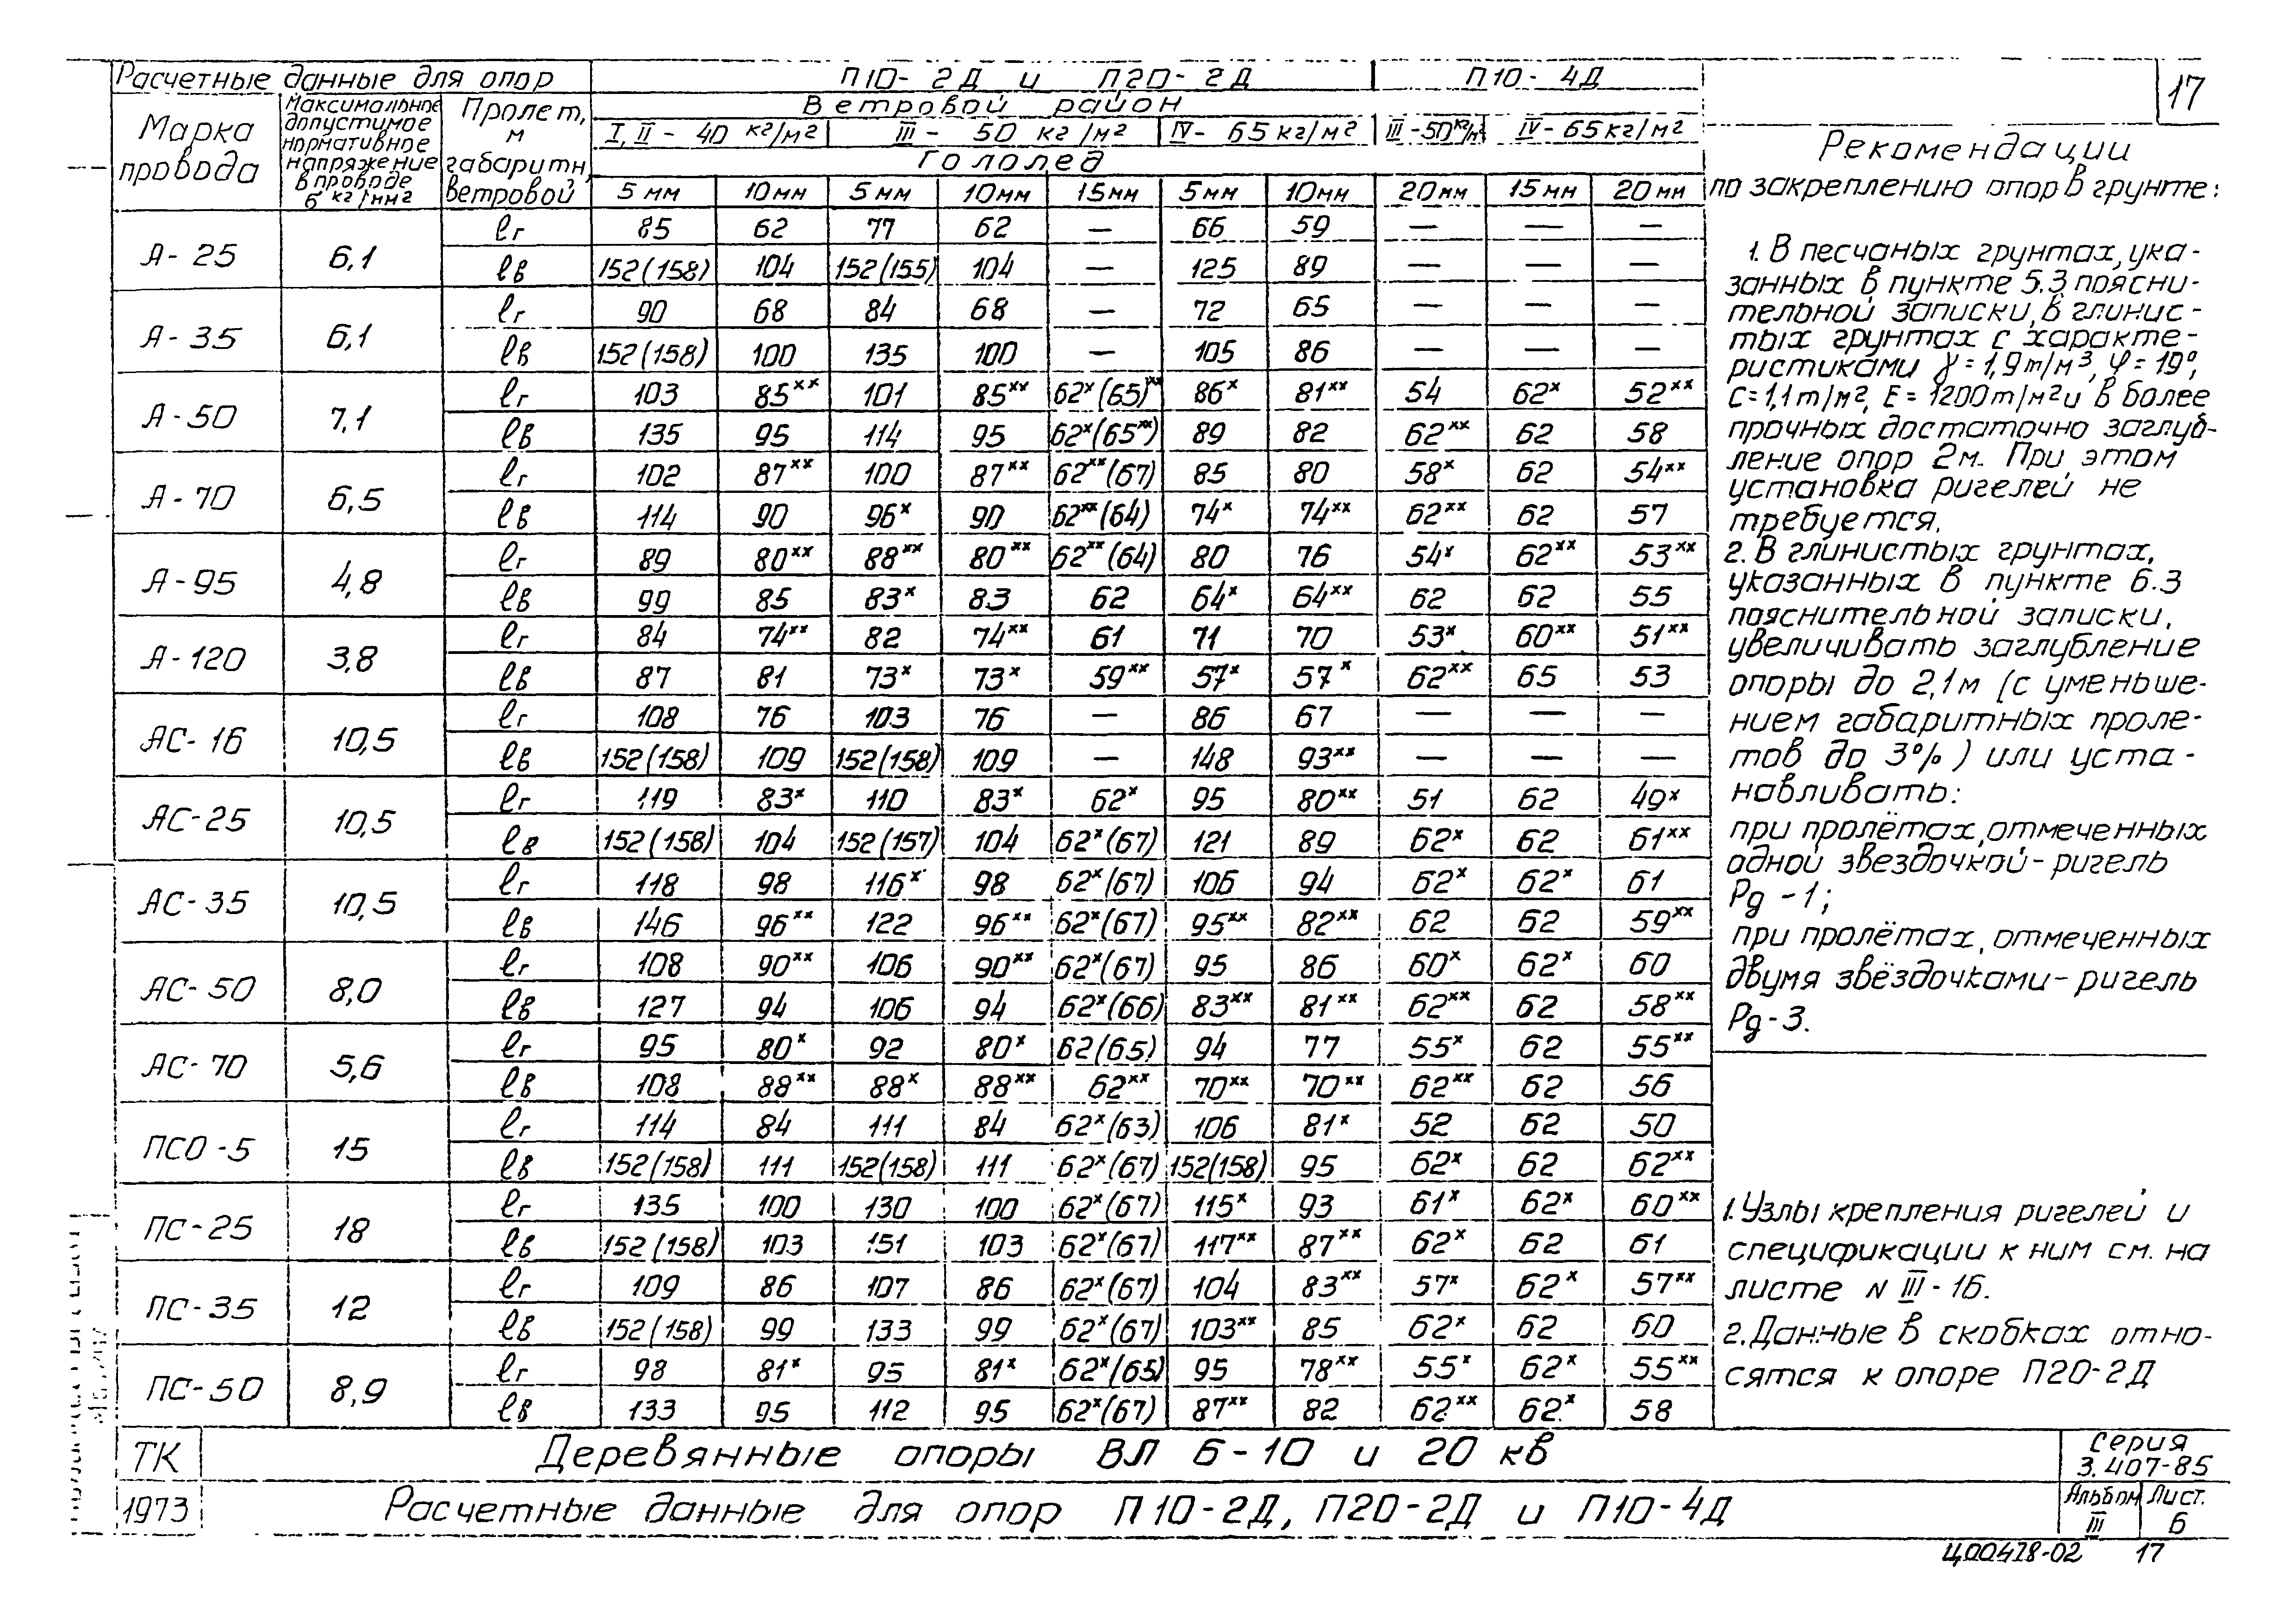 17
Расчетные данные для опор П10-2Д и П20-2Д П10-4Д
Марка провода
Максимальное допустимое нормативное напряжение в проводе б кг/мм2
Пролет, м габаритн, ветровой
Ветровой район
I, II - 40 кг/м2 III - 50 кг/м2 IV - 65 кг/м2 III - 50 кг/м2 IV - 65 кг/м2
Гололед
5 мм 10мм 5 мм 10мм 15мм 5мм 10мм 20мм 15мм 20мм
А-25 6,1 lг 85 62 77 62 — 66 59 — — —
lв 152(158) 104 152(155) 104 — 125 89 — — —
А-35 6,1 lг 90 68 84 68 — 72 65 — — —
lв 152(158) 100 135 100 — 105 86 — — —
А-50 7,1 lг 103 85xx 101 85xx 62x(65)xx 86x 81xx 54 62x 52xx
lв 135 95 114 95 62x(65xx) 89 82 62xx 62 58
А-70 6,5 lг 102 87xx 100 87xx 62xx(67) 85 80 58x 62 54xx
lв 114 90 96x 90 62xx(64) 74x 74xx 62xx 62 57
А-95 4,8 lг 89 80xx 88xx 80xx 62xx(64) 80 76 54x 62xx 53xx
lв 99 85 83x 83 62 64x 64xx 62 62 55
А-120 3,8 lг 84 74xx 82 74xx 61 71 70 53x 60xx 51xx
lв 87 81 73x 73x 59xx 57x 57x 62xx 65 53
АС-16 10,5 lг 108 76 103 76 — 86 67 — — —
lв 152(158) 109 152(158) 109 — 148 93xx — — —
АС-25 10,5 lг 119 83x 110 83x 62x 95 80xx 51 62 49x
lв 152(158) 104 152(157) 104 62x(67) 121 89 62x 62 61xx
АС-35 10,5 lг 118 98 116x 98 62x(67) 106 94 62x 62x 61
lв 146 96xx 122 96xx 62x(67) 95xx 82xx 62 62 59xx
АС-50 8,0 lг 108 90xx 106 90xx 62x(67) 95 86 60x 62x 60
lв 127 94 106 94 62x(66) 83xx 81xx 62xx 62 58xx
АС-70 5,6 lг 95 80x 92 80x 62(65) 94 77 55x 62 55xx
lв 108 88xx 88x 88xx 62xx 70xx 70xx 62xx 62 56
ПСО-5 15 lг 114 84 111 84 62x(63) 106 81x 52 62 50
lв 152(158) 111 152(158) 111 62x(67) 152(158) 95 62x 62 62xx
ПС-25 18 lг 135 100 130 100 62x(67) 115x 93 61x 62x 60xx
lв 152(158) 103 151 103 62x(67) 117xx 87xx 62x 62 61
ПС-35 12 lг 109 86 107 86 62x(67) 104 83xx 57x 62x 57xx
lв 152(158) 99 133 99 62x(67) 103xx 85 62x 62 60
ПС-50 8,9 lг 98 81x 95 81x 62x(65) 95 78xx 55x 62x 55xx
lв 133 95 112 95 62x(67) 87xx 82 62xx 62x 58
Рекомендации
по закреплению опор в грунте:
1. В песчаных грунтах, ука-
занных в пункте 5.3 поясни-
тельной записки, в глинис-
тых грунтах с характе-
ристиками γ=1,9т/м3, φ=19°,
С=1,1т/м2, Е=1200т/м2 и в более
прочных достаточно заглуб-
ление опор 2м. При этом
установка ригелей не
требуется.
2. В глинистых грунтах,
указанных в пункте 6.3
пояснительной записки,
увеличивать заглубление
опоры до 2,1м (с уменьше-
нием габаритных проле-
тов до 3%) или уста-
навливать:
при пролётах, отмеченных
одной звездочкой-ригель
Рд-1;
при пролётах, отмеченных
двумя звёздочками-ригель
Рд-3.
1. Узлы крепления ригелей и
спецификации к ним см. на
листе N III-16.
2. Данные в скобках отно-
сятся к опоре П20-2Д
ТК Деревянные опоры ВЛ 6-10 и 20 кв
Серия
3.407-85
1973 Расчетные данные для опор П10-2Д, П20-2Д и П10-4Д
Альбом Лист.
III 6
Ц00478-02 17